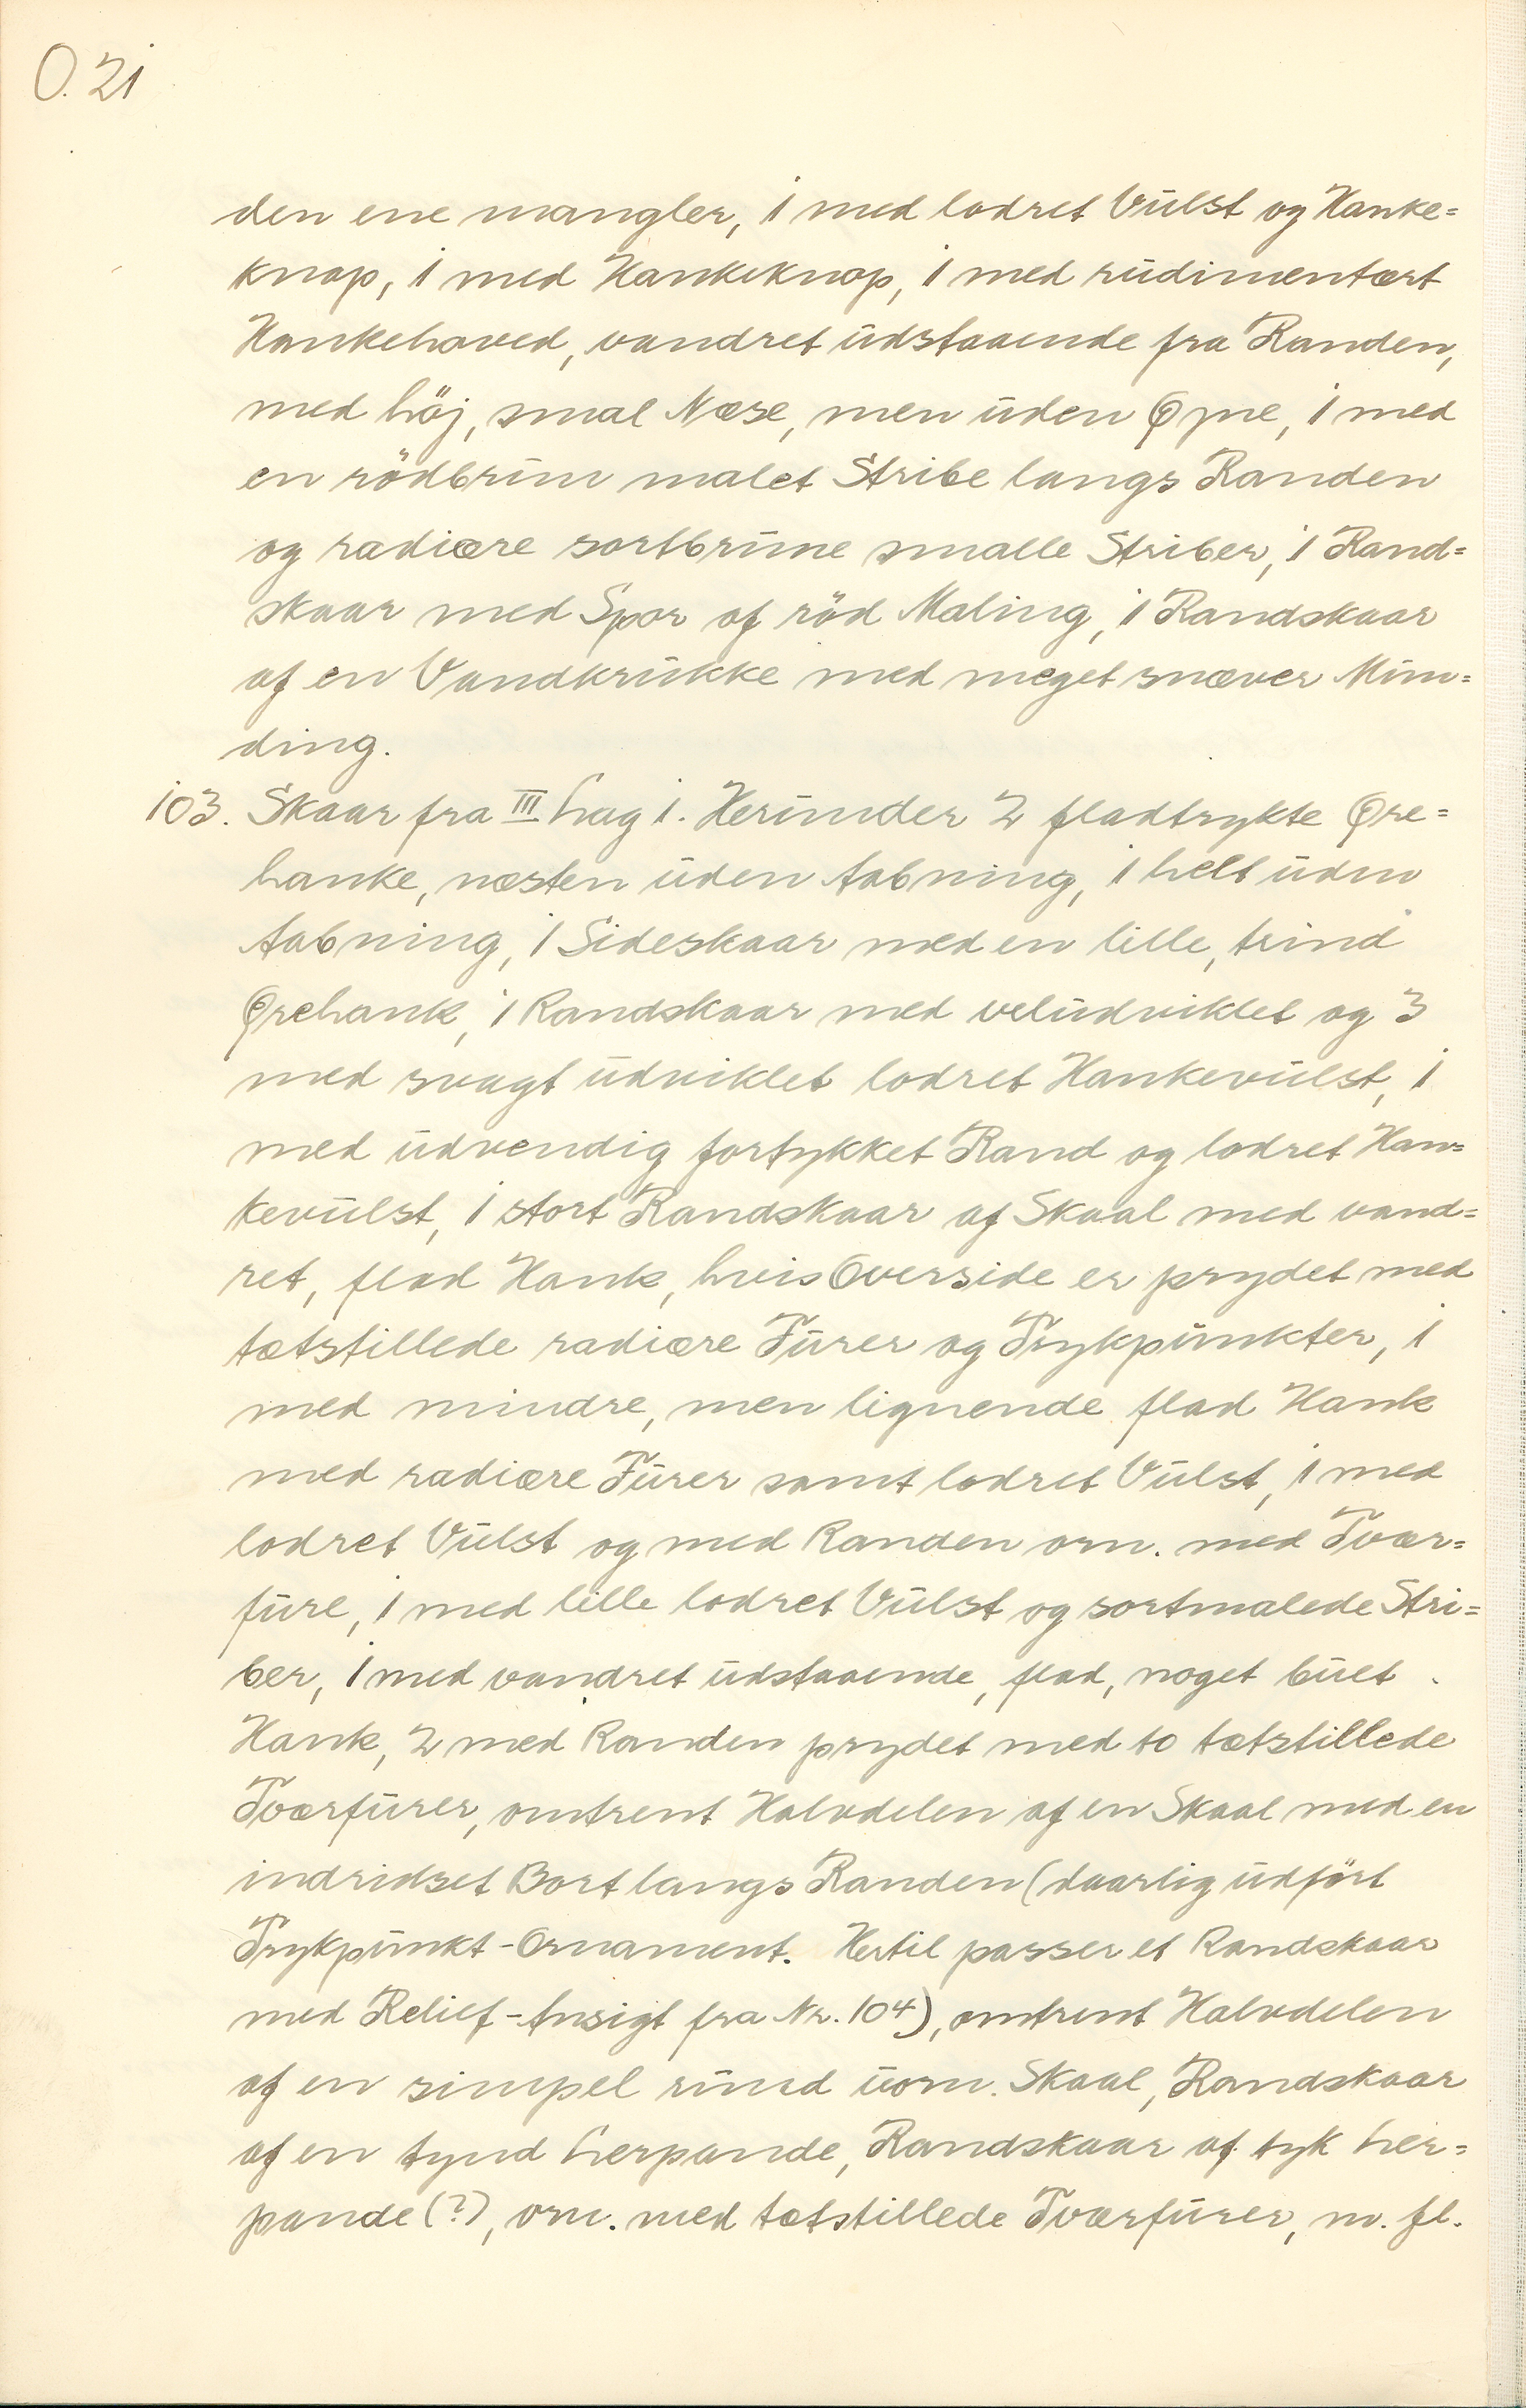 O. 21
den ene mangler, 1 med lodret Vulst og Hanke=
knop, 1 med Hankeknop, 1 med rudimentært
Hankehoved, vandret udstaaende fra Randen,
med höj, smal Næse, men uden Øjne, 1 med
en rödbrun malet Stribe langs Randen
og radiære sortbrune smalle Striber, 1 Rand=
skaar med Spor af röd Maling, 1 Randskaar
af en Vandkrukke med meget snæver Mun=
ding.
103. Skaar fra III Lag 1. Herunder 2 fladtrykte Øre=
hanke, næsten uden Aabning, 1 helt uden
Aabning, 1 Sideskaar med en lille, trind
Ørehank, 1 Randskaar med veludviklet og 3
med svagt udviklet lodret Hankevulst, 1
med udvendig fortykket Rand og lodret Han=
kevulst, 1 stort Randskaar af Skaal med vand=
ret, flad Hank, hvis Overside er prydet med
tætstillede radiære Furer og Trykpunkter, 1
med mindre, men lignende flad Hank
med radiære Furer samt lodret Vulst, 1 med
lodret Vulst og med Randen orn. med Tvær=
fure, 1 med lille lodret Vulst og sortmalede Stri=
ber, 1 med vandret udstaaende, flad, noget buet
Hank, 2 med Randen prydet med to tætstillede
Tværfurer, omtrent Halvdelen af en Skaal med en
indridset Bort langs Randen (daarlig udfört
Trykpunkt-Ornament. Hertil passer et Randskaar
med Relief-Ansigt fra Nr. 104), omtrent Halvdelen
af en simpel rund uorn. Skaal, Randskaar
af en tynd Lerpande, Randskaar af tyk Ler=
pande (?), orn. med tætstillede Tværfurer, m. fl.